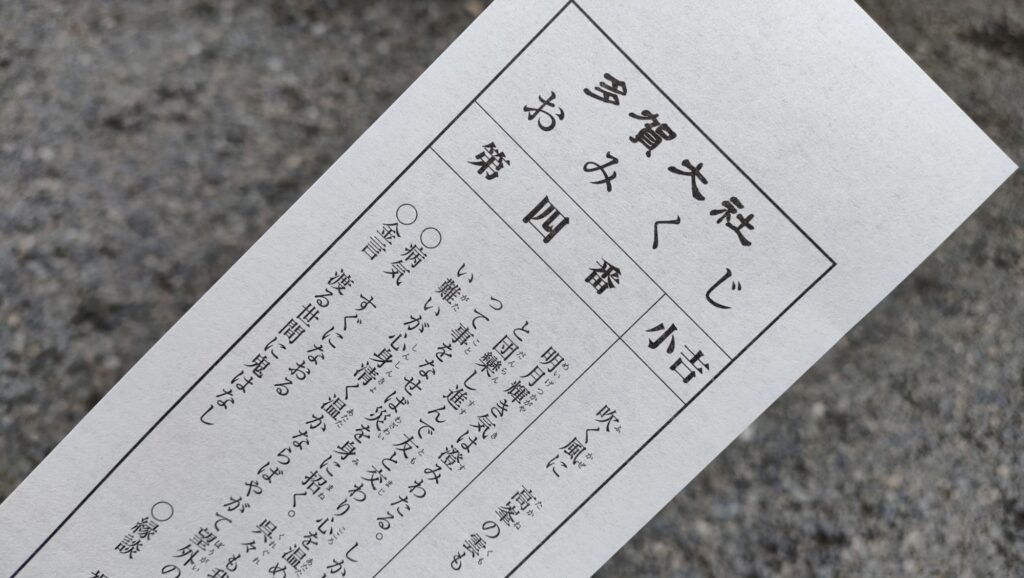 多賀大社
おみくじ
第四番
小吉
吹く風に 高峯の雲も
明月輝き気は澄みわたる。しか
と団欒し進んで友と交わり心を温め
って事をなせば災を身に招く。呉々も我
い難いが心身清く温かならばやがて望外の
○病気 すぐになおる ○縁談
○金言 渡る世間に鬼はなし